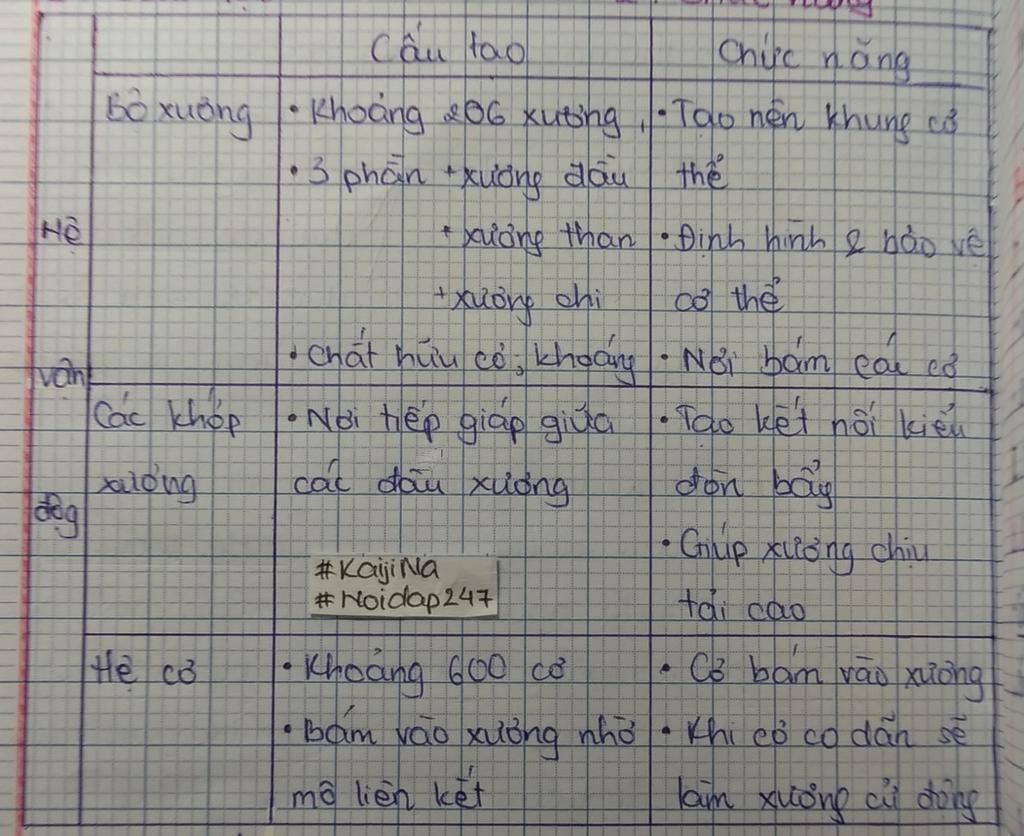 Cấu tạo
Chức năng
Bộ xương
• Khoảng 206 xương,
• 3 phần + xương đầu
+ xương than
+ xương chi
• Chất hữu cơ, khoáng
• Tạo nên khung cơ
thể
• Định hình & bảo vệ
cơ thể
• Nơi bám các cơ
Hệ
vận
độg
Các khớp
xương
• Nơi tiếp giáp giữa
các đầu xương
• Tạo kết nối kiểu
đòn bẩy
• Giúp xương chịu
tải cao
#KaijiNa
#Hoidap247
Hệ cơ
• Khoảng 600 cơ
• Bám vào xương nhờ
mô liên kết
• Cơ bám vào xương
• Khi cơ co dãn sẽ
làm xương cử động